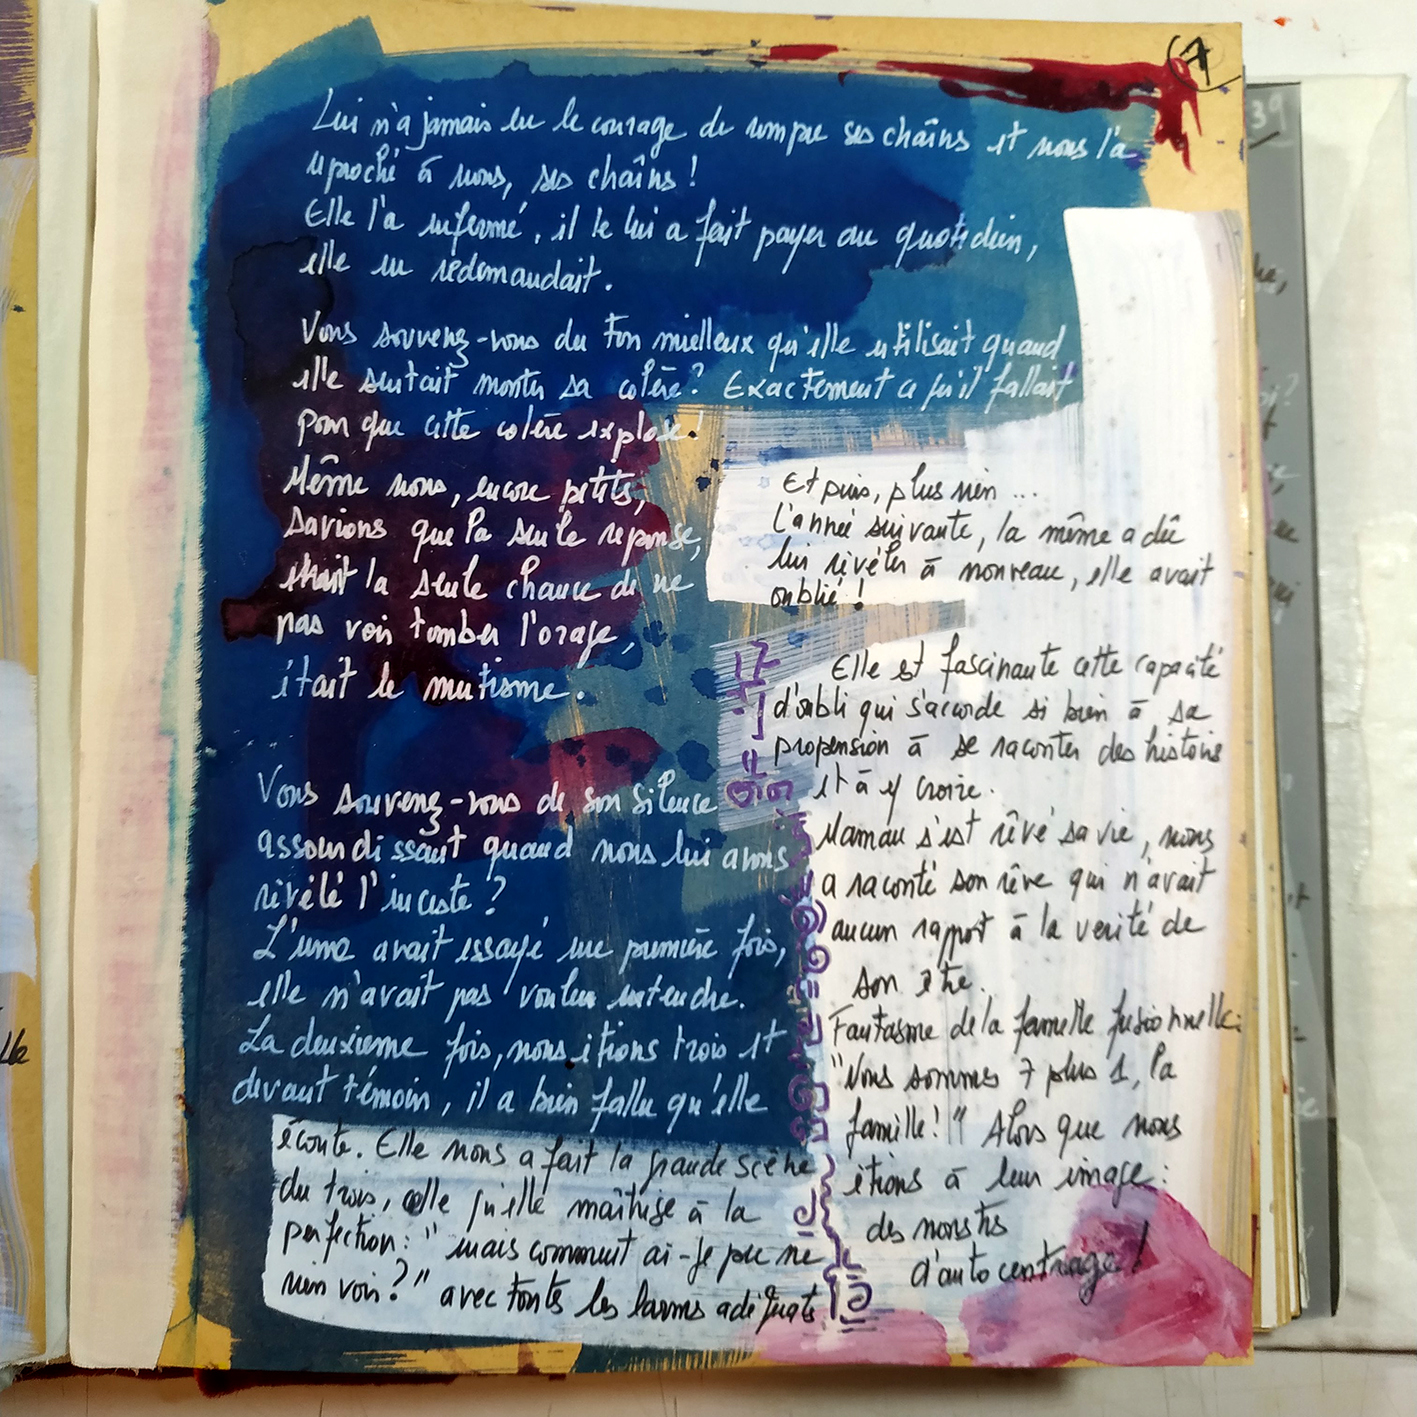 7
Lui n'a jamais eu le courage de rompre ses chaînes et nous l'a
reproché à nous, ses chaînes !
Elle l'a enfermé, il le lui a fait payer au quotidien,
elle en redemandait.
Vous souvenez-vous du ton mielleux qu'elle utilisait quand
elle sentait monter sa colère ? Exactement ce qu'il fallait
pour que cette colère explose !
Même nous, encore petits,
savions que la seule reponse,
était la seule chance de ne
pas voir tomber l'orage,
était le mutisme.
Vous souvenez-vous de son silence
assourdissant quand nous lui avons
révélé l'inceste ?
L'une avait essayé une première fois,
elle n'avait pas voulu entendre.
La deuxième fois, nous étions trois et
devant témoin, il a bien fallu qu'elle
écoute. Elle nous a fait la grande scène
du trois, celle qu'elle maîtrise à la
perfection : "mais comment ai-je pu ne
rien voir ?" avec toutes les larmes adéquates
Et puis, plus rien ...
L'année suivante, la même a dû
lui révéler à nouveau, elle avait
oublié !
Elle est fascinante cette capacité
d'oubli qui s'accorde si bien à sa
propension à se raconter des histoires
et à y croire.
Maman s'est rêvé sa vie, nous
a raconté son rêve qui n'avait
aucun rapport à la verité de
son être.
Fantasme de la famille fusionnelle :
"Nous sommes 7 plus 1, la
famille !" Alors que nous
étions à leur image :
des monstres
d'autocentrage !
39